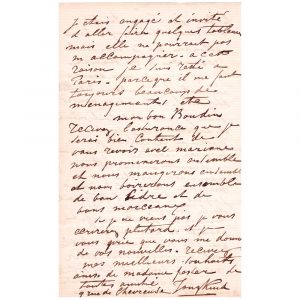 je étais engagé et invité
d'aller faire quelques tableaux
mais elle ne pourrait pas
m accompagner. a cette
raison je suis resté au
Paris. parceque il me faut
toujours beaucoup de
ménagements, etc
mon bon Boudin
recevez l'assurance que je
serai bien content de
vous revoir avec marianne
nous promenerons ensemble
et nous mangerons ensemble
et nous boirerons ensemble
de bon cidre et de
bons morceaux
si je ne viens pas je vous
écrirez plutard. et je
vous prie que vous me donnez
de vos nouvelles. recevez
mes meilleurs souhaits
amis de madame fesser de
toutes amitié Jongkind
rue de Chevreuse